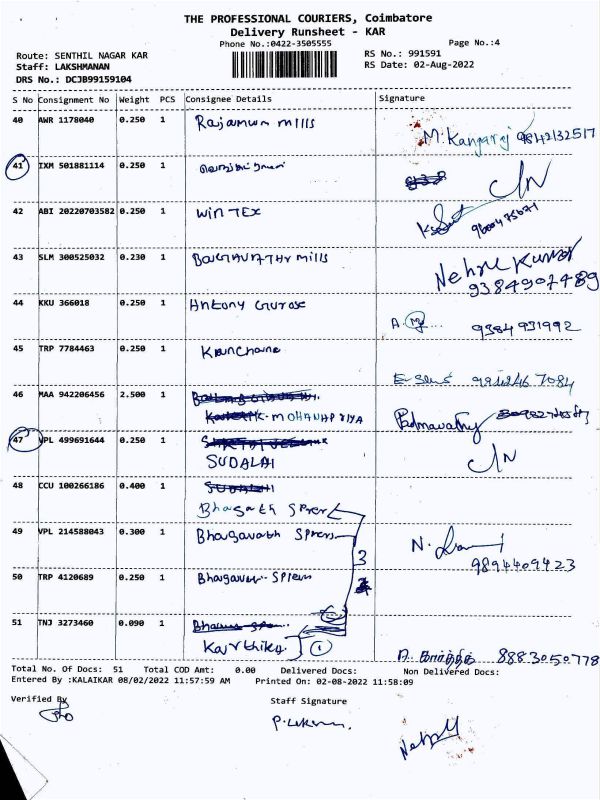 THE PROFESSIONAL COURIERS, Coimbatore
Delivery Runsheet - KAR
Phone No.:0422-3505555 Page No.:4
Route: SENTHIL NAGAR KAR RS No.: 991591
Staff: LAKSHMANAN RS Date: 02-Aug-2022
DRS No.: DCJB99159104
S No Consignment No Weight PCS Consignee Details Signature
40 AWR 1178040 0.250 1 mills M. Kangaraj 9842132517
41 IXM 501881114 0.250 1
42 ABI 20220703582 0.250 1 WIN TEX
43 SLM 300525032 0.230 1 mills Nehru Kumar 9384907489
44 KKU 366018 0.250 1 Antony 9384931992
45 TRP 7784463 0.250 1
46 MAA 942206456 2.500 1 K. MOHANAPRIYA Padmavathy
47 VPL 499691644 0.250 1 SUDALAI
48 CCU 100266186 0.400 1 Bhagath
49 VPL 214588043 0.300 1 Bhagavath N. 9894409423
50 TRP 4120689 0.250 1 3
51 TNJ 3273460 0.090 1 Karthika 1 8883050778
Total No. Of Docs: 51 Total COD Amt: 0.00 Delivered Docs: Non Delivered Docs:
Entered By :KALAIKAR 08/02/2022 11:57:59 AM Printed On: 02-08-2022 11:58:09
Verified By Staff Signature
Nehru